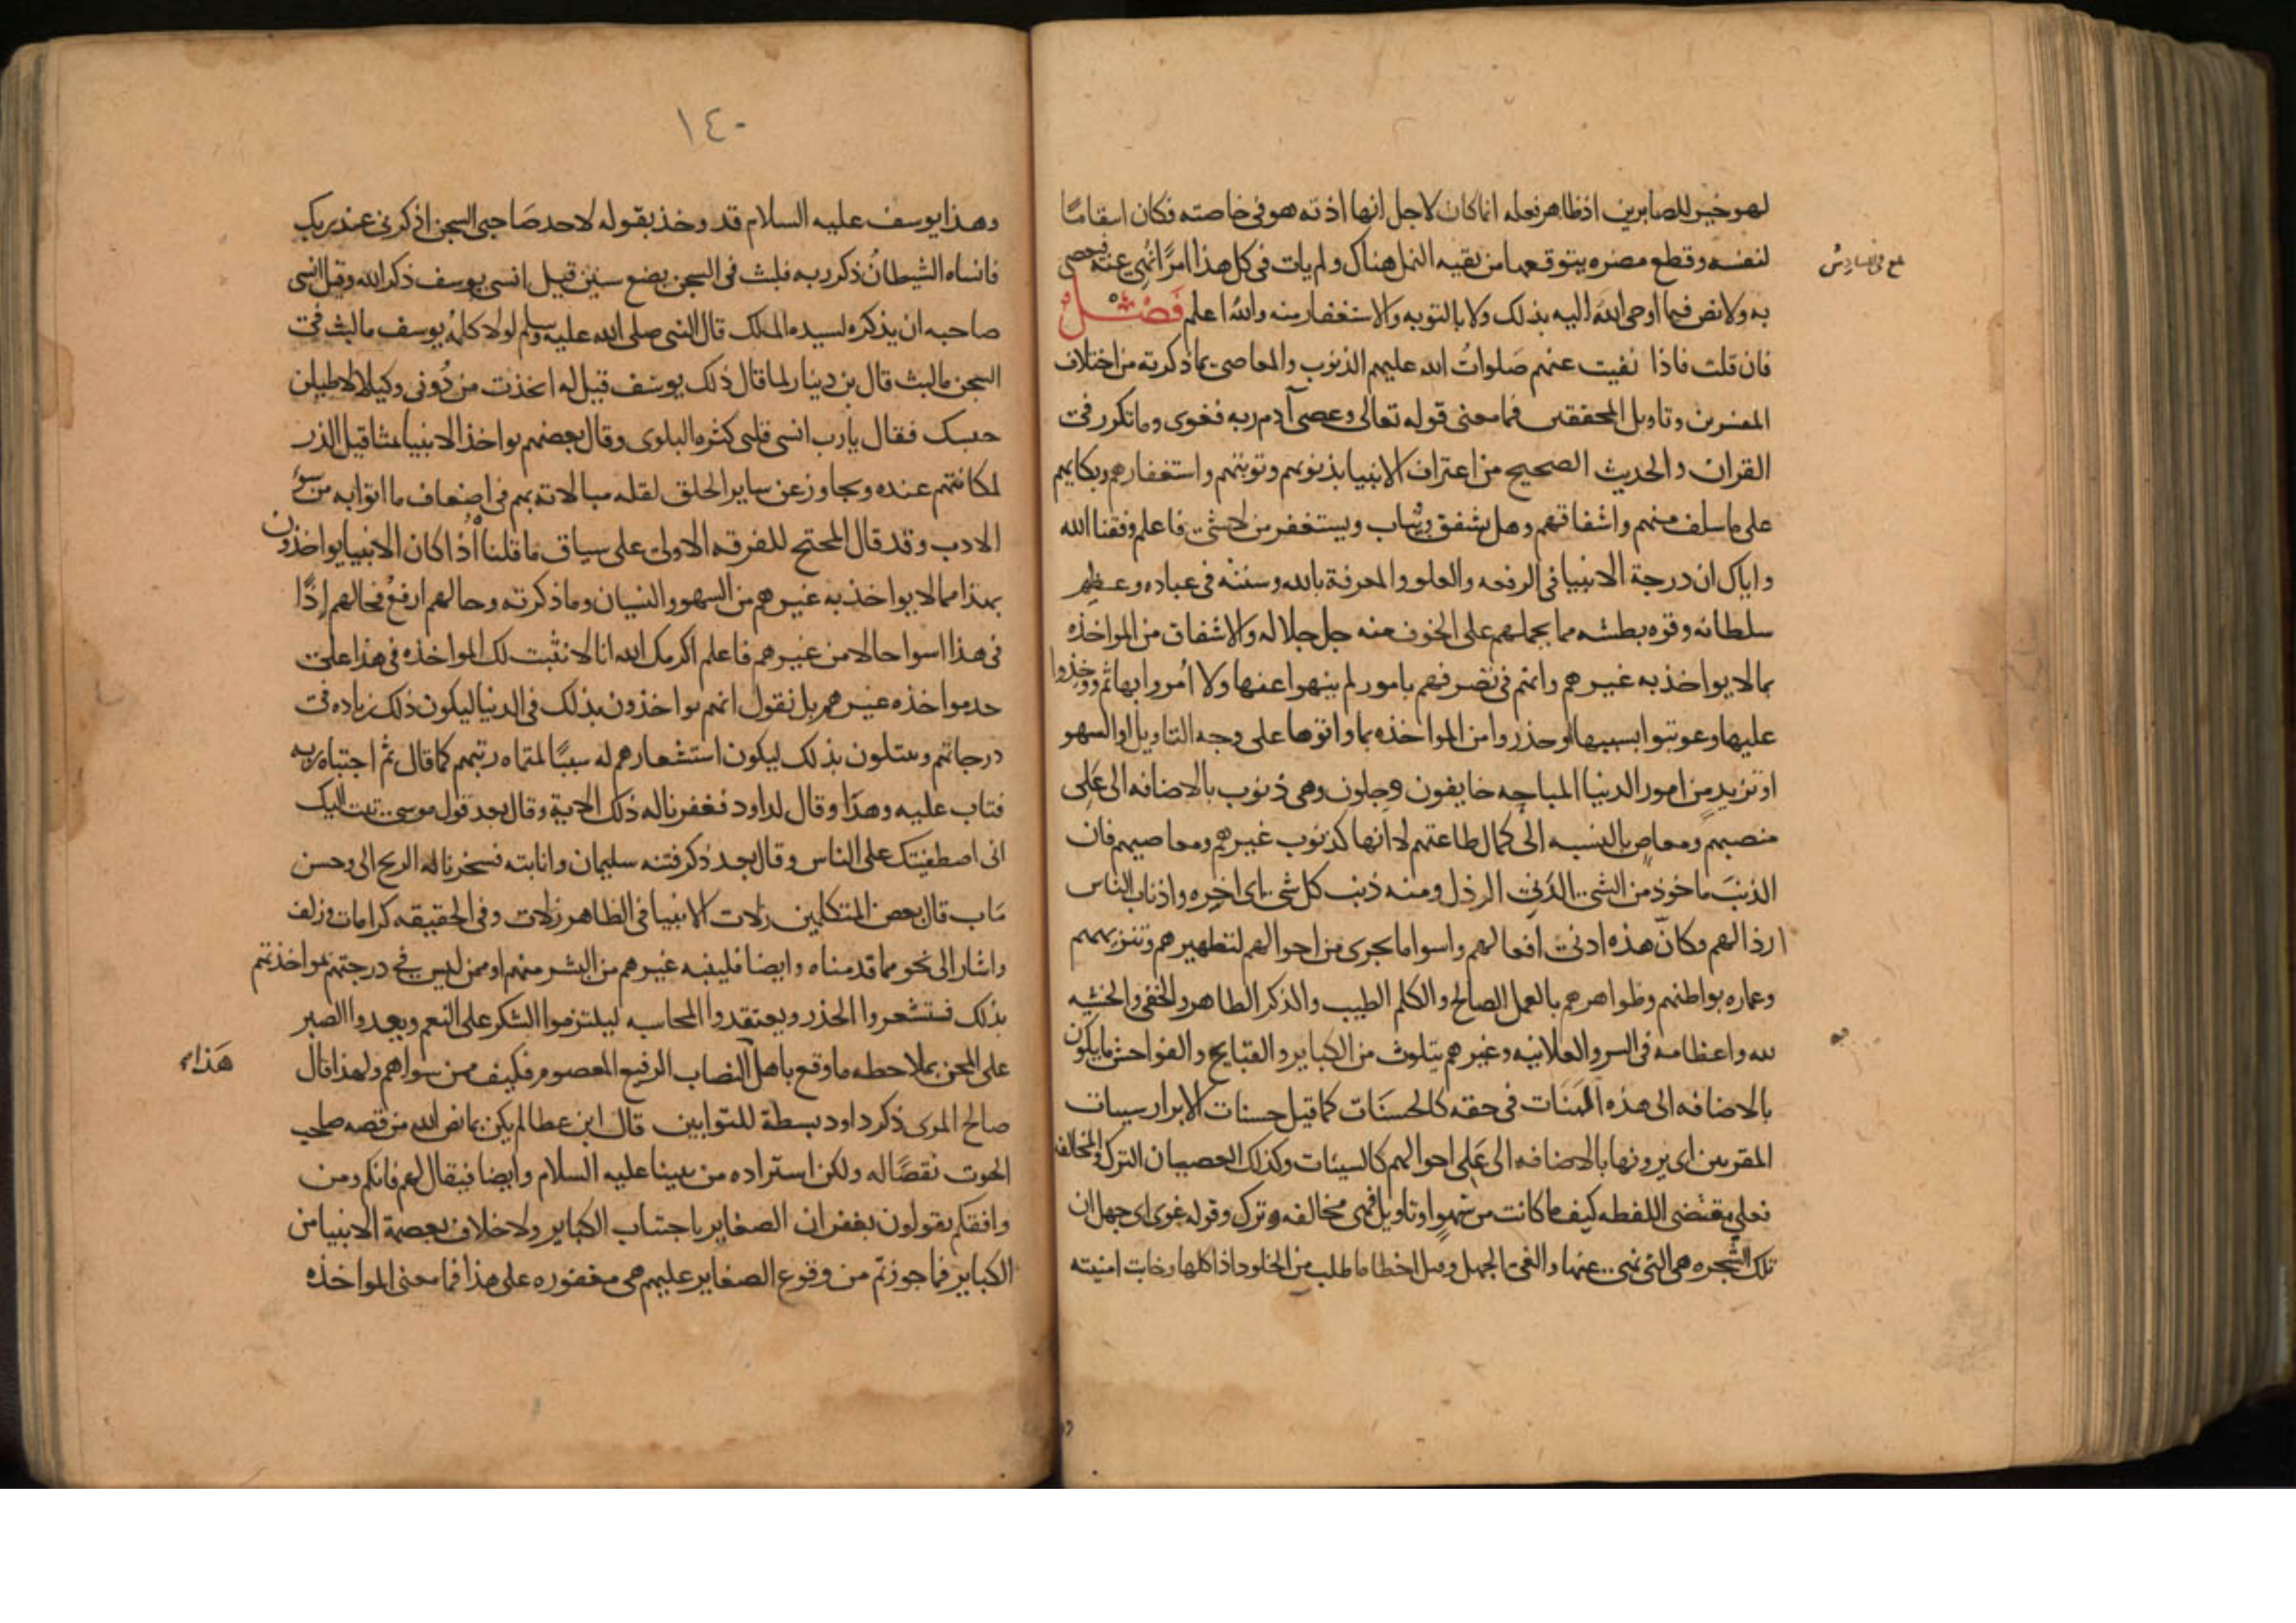 لهو خير للصابرين اذ ظاهر فعله انما كان لاجل انها اذته هو في خاصته فكان انتقاما
لنفسه وقطع مضره يتوقعها من بقيه النمل هناك ولم يات في كل هذا امرًا نُهي عنه فيعصي
بلغ في السادس
به ولا نص فيما اوحى الله اليه بذلك ولا بالتوبه والاستغفار منه والله اعلم فَصْل
فان قلت فاذا نفيت عنهم صَلواتُ الله عليهم الذنوب والمعاصي بما ذكرته من اختلاف
المفسرين وتاويل المحققين فما معنى قوله تعالى وعصى آدم ربه فغوى وما تكرر في
القران والحديث الصحيح من اعتراف الانبيا بذنوبهم وتوبتهم واستغفارهم وبكايهم
على ما سلف منهم واشفاقهم وهل يشفق ويُتاب ويستغفر من لا شي فاعلم وفقنا الله
واياك ان درجة الانبيا في الرفعه والعلو والمعرفة بالله وسنته في عباده وعظيم
سلطانه وقوه بطشه مما يحملهم على الخوف منه جل جلاله والاشفاق من المواخذه
بما لا يواخذ به غيرهم وانهم في تصرفهم بامور لم ينهوا عنها ولا اُمروا بها ثم ووخِذوا
عليها وعوتبوا بسببها او حذروا من المواخذه بها واتوها على وجه التاويل او السهو
او تزيدٍ من امور الدنيا المباحه خايفون وجلون وهي ذنوب بالاضافه الى عَلِى
منصبهم ومعاصٍ بالنسبه الى كمال طاعتهم لا انها كذنوب غيرهم ومعاصيهم فان
الذنبَ ماخوذ من الشي الدَني الرذل ومنه ذنب كل شي اى اخِره واذناب الناس
ارذالهم وكانّ هذه ادنى افعالهم واسوا ما يجرى من احوالهم لتطهيرهم وتنزيههم
وعماره بواطنهم وظواهرهم بالعمل الصالح والكلم الطيب والذكر الظاهر والخفي والخشيه
لله واعظامه في السر والعلانيه وغيرهم يتلوث من الكباير والقبايح والفواحش ما يكون
بالاضافه الى هذه الهَنَات في حقه كالحسَنَات كما قيل حسنات الابرار سييات
المقربين اى يرونها بالاضافه الى عَلِى احوالهم كالسيئات وكذلك العصيان الترك والمخالفه
فعلى مقتضى اللفظه كيف ما كانت من سَهوٍ او تاويل فهى مخالفه وترك وقوله غوى اى جهل ان
تلك الشجره هي التي نهى عنها والغي الجهل وقيل اخطا ما طلب من الخلود اذ اكلها وخابت امنيته
١٤٠
وهذا يوسف عليه السلام قد ووخذ بقوله لاحد صَاحبي السجن اذكرني عند ربك
فانساه الشيطانُ ذكر ربه فلبث في السجن بضع سنين قيل انسي يوسف ذكر الله وقيل انسى
صاحبه ان يذكره لسيده الملك قال النبي صلى الله عليه وسلم لولا كلمهُ يوسف ما لبث في
السجن ما لبث قال بن دينار لما قال ذلك يوسف قيل له اتخذت من دُوني وكيلا لاطيلن
حبسك فقال يارب انسى قلبي كثره البلوى وقال بعضهم يواخذ الانبيا بمثاقيل الذر
لمكانتهم عنده ويجاوز عن ساير الخلق لقله مبالاته بهم في اضعاف ما اتوا به من سوء
الادب وقد قال المحتج للفرقه الاولى على سياق ما قلناه اذا كان الانبيا يواخذون
بهذا مما لا يواخذ به غيرهم من السهو والنسيان وما ذكرته وحالهم ارفعُ فحالهم اِذًا
في هذا اسوا حالا من غيرهم فاعلم اكرمك الله انا لا نثبت لك المواخذه في هذا على
حد مواخذه غيرهم بل نقول انهم يواخذون بذلك في الدنيا ليكون ذلك زياده في
درجاتهم ويبتلون بذلك ليكون استشعارهم له سببًا لمنماه رتبهم كما قال ثم اجتباه ربه
فتاب عليه وهدَا وقال لداود فغفرنا له ذلك الاية وقال بعد قول موسى تبت اليك
انى اصطفيتك على الناس وقال بعد ذكر فتنه سليمان وانابته فسخرنا له الريح الى وحسن
مَاب قال بعض المتكلمين زلات الانبيا في الظاهر زلات وفي الحقيقه كرامات وزلف
واشار الى نحوٍ مما قدمناه وايضا فلينبه غيرهم من البشر منهم او ممن ليس في درجتهم بمواخذتهم
بذلك فيستشعروا الحذر ويعتقدوا المحاسبه ليلتزموا الشكر على النعم ويعدوا الصبر
على المحن بملاحظه ما وقع باهل النصاب الرفيع المعصوم فكيف بمن سواهم ولهذا قال
هَذا
صالح المرى ذكر داود بسطة للتوابين قال ابن عطا لم يكن ما نص الله من قصه صاحب
الحوت نقصًا له ولكن استزاده من نبينا عليه السلام وايضا فيقال لهم فانكم ومن
وافقكم يقولون بغفران الصغاير باجتناب الكباير ولا خلاف بعصمة الانبيا من
الكباير فما جوزتم من وقوع الصغاير عليهم هى مغفوره على هذا فما معنى المواخذه